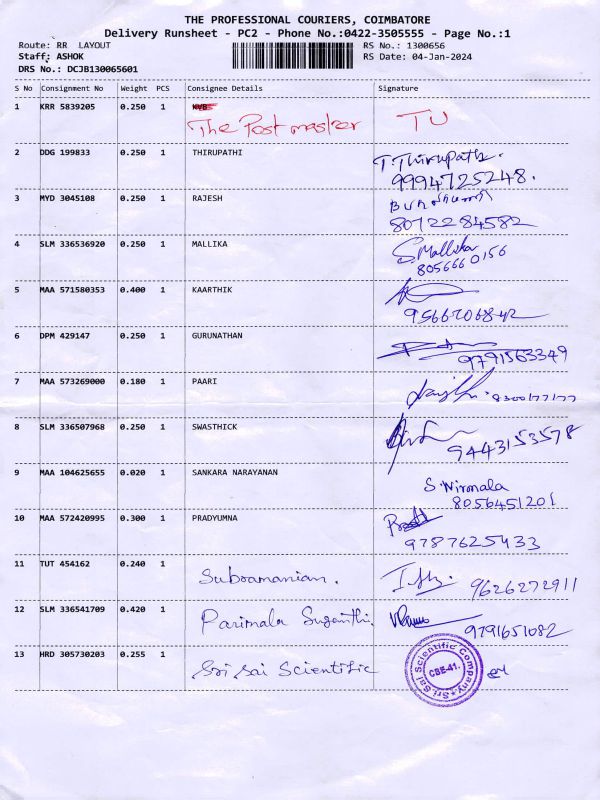 THE PROFESSIONAL COURIERS, COIMBATORE
Delivery Runsheet - PC2 - Phone No.:0422-3505555 - Page No.:1
Route: RR LAYOUT RS No.: 1300656
Staff: ASHOK RS Date: 04-Jan-2024
DRS No.: DCJB130065601
S No Consignment No Weight PCS Consignee Details Signature
1 KRR 5839205 0.250 1
The Post master TU
2 DDG 199833 0.250 1 THIRUPATHI T.Thirupathi.
9994725248.
3 MYD 3045108 0.250 1 RAJESH
8072284582
4 SLM 336536920 0.250 1 MALLIKA S.Mallika
8056660156
5 MAA 571580353 0.400 1 KAARTHIK
9566206842
6 DPM 429147 0.250 1 GURUNATHAN
9791563349
7 MAA 573269000 0.180 1 PAARI
8300177177
8 SLM 336507968 0.250 1 SWASTHICK
9443153578
9 MAA 104625655 0.020 1 SANKARA NARAYANAN S.Nirmala
8056451201
10 MAA 572420995 0.300 1 PRADYUMNA
9787625433
11 TUT 454162 0.240 1 Subramanian. 9626272911
12 SLM 336541709 0.420 1 Parimala Suganthi 9791651082
13 HRD 305730203 0.255 1 Sri Sai Scientific Sri Sai Scientific Company
CBE-41.